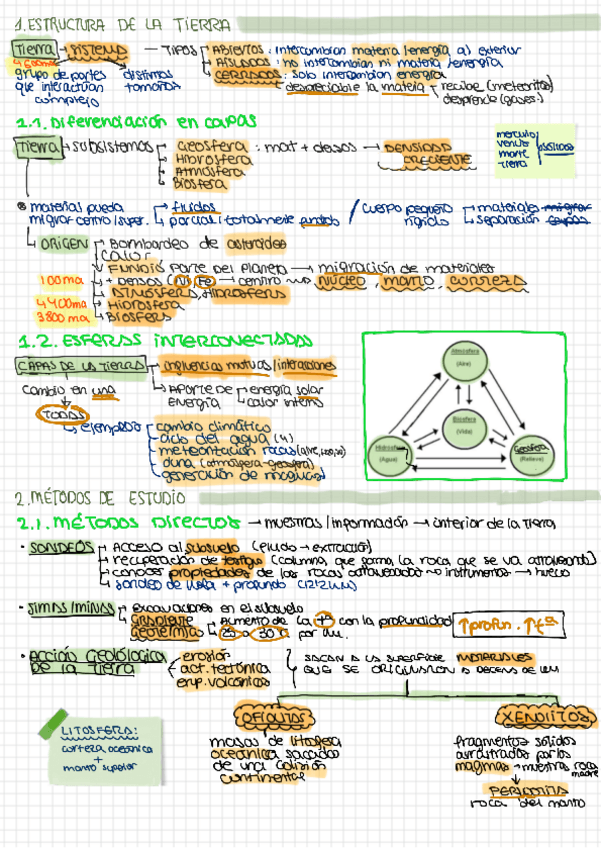 1. ESTRUCTURA DE LA TIERRA
Tierra → SISTEMA — TIPOS
ABIERTOS: intercambian materia/energía al exterior
AISLADOS: no intercambian ni materia/energía
CERRADOS: solo intercambian energía
despreciable la materia
recibe (meteoritos)
desprende (gases)
grupo de partes distintas
que interactúan tamaños
complejo
1.1. Diferenciación en capas
Tierra → subsistemas
Geosfera: mat + densos → DENSIDAD
CRECIENTE
Hidrosfera
Atmósfera
Biosfera
mercurio
venus
marte
tierra
* material pueda
migrar centro/super.
fluidos
parcial/totalmente
cuerpo pequeño
rígido
materiales migrar
separación capas
ORIGEN
Bombardeo de asteroides
Calor
FUNDIÓ parte del planeta → migración de materiales
100ma
+ densos (Ni, Fe) → centro → núcleo, manto, corteza
ATMÓSFERA, HIDROSFERA
4400ma Hidrosfera
3800ma Biosfera
1.2. ESFERAS INTERCONECTADAS
CAPAS DE LA TIERRA → influencias mutuas/interacciones
cambio en una
↓
TODAS
APORTE DE energía
energía solar
calor interno
ejemplos
cambio climático
ciclo del agua (4)
meteorización rocas
duna (atmósfera-geosfera)
generación de magmas
Atmósfera
(Aire)
Biosfera
(Vida)
Hidrosfera
(Agua)
Geosfera
(Relieve)
2. MÉTODOS DE ESTUDIO
2.1. MÉTODOS DIRECTOS → muestras/información → interior de la tierra
· SONDEOS
Acceso al subsuelo
recuperación de testigo (columna, que forma la roca que se va atravesando)
conocer propiedades de las rocas atravesadas → instrumentos → hueco
sondeo de Kola + profundo (12'2 km)
· SIMAS/MINAS
Excavaciones en el subsuelo
GRADIENTE
GEOTÉRMICO
aumento de la tª con la profundidad
25 o 30ºC por km.
↑profun. ↑tª
· ACCIÓN GEOLÓGICA
DE LA TIERRA
erosión
act. tectónica
erup. volcánicas
SACAN A LA SUPERFICIE MATERIALES
QUE SE ORIGINARON A DECENAS DE KM
OFIOLITAS
masas de litosfera
oceánica sacadas
de una colisión
continental
XENOLITOS
fragmentos sólidos
arrastrados por los
magmas → muestras roca
madre
PERIDOTITA
roca del manto
LITOSFERA:
corteza oceánica
+
manto superior